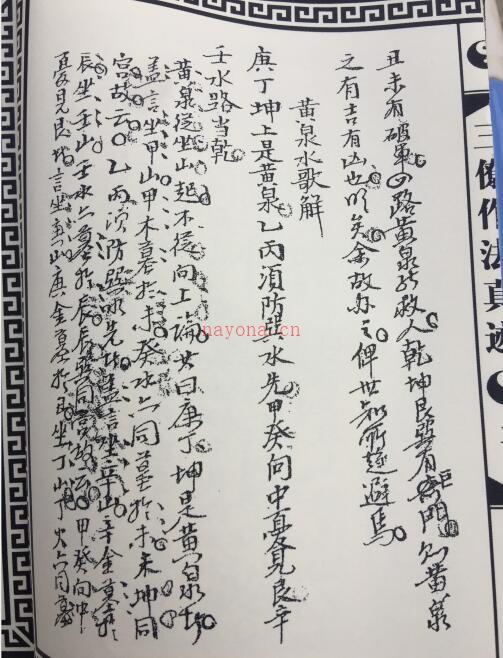 丑未有破軍四路黃泉能救人乾坤艮巽有巨門則黃泉
之有吉有凶也明矣余故亦之俾世知所趨避焉
黃泉水歌解
庚丁坤上是黃泉乙丙須防巽水先甲癸向中憂見艮辛
壬水路當乾
黃泉從坐山起不從向上論其曰庚丁坤是黃泉者
蓋言坐甲山甲木墓於未癸水六同墓於未未坤同
宮故云乙丙須防巽水先者蓋言坐辛山辛金墓於
辰坐壬山壬水六墓於辰辰巽同宮故云甲癸向中
憂見艮者言坐庚山庚金墓於丑坐丁山丁火六同墓
三僚作法真迹
nayona.cn